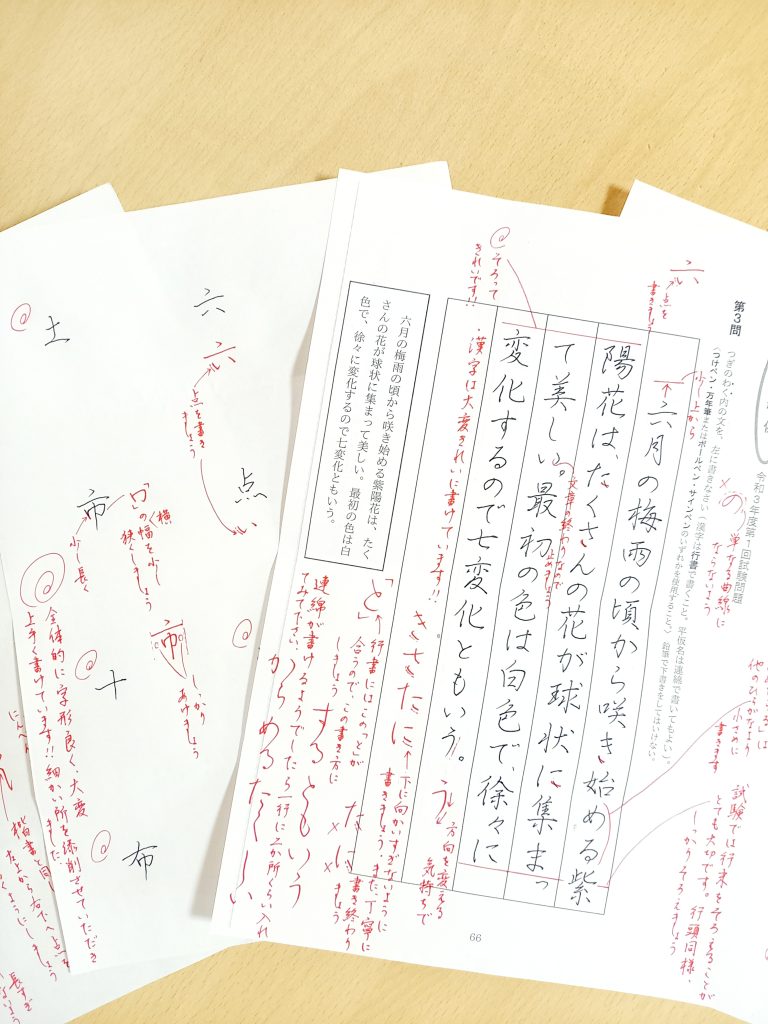 令和3年度第1回試験問題
第3問
つぎのわく内の文を、左に書きなさい(漢字は行書で書くこと。平仮名は連綿で書いてもよい)。
〈つけペン・万年筆またはボールペン・サインペンのいずれかを使用すること。〉鉛筆で下書きをしてはいけない。
六
点を
書きましょう
少し上から
の
単なる曲線に
ならないよう
める」は
他のひらがなより
小さめに
書きます
試験では行末をそろえることが
とても大切です。行頭同様、
しっかりそろえましょう
六月の梅雨の頃から咲き始める紫
陽花は、たくさんの花が球状に集まっ
て美しい。最初の色は白色で、徐々に
変化するので七変化ともいう。
文章の終わりなので
止めましょう
そろって
きれいです!!
・漢字は大変きれいに書けています!!
う
方向を変える
気持ちで
きさたに
下に向かいすぎないように
書きましょう。また、丁寧に
書き終わり
ましょう
たに
「と」
行書にはこの「と」が
合うので、この書き方に
しましょう
するともいう
連綿が書けるようでしたら一行に二か所くらい入れ
てみて下さい
からめるたくしい
六月の梅雨の頃から咲き始める紫陽花は、たく
さんの花が球状に集まって美しい。最初の色は白
色で、徐々に変化するので七変化ともいう。
66
六
六
点を書き
ましょう
点
市
「口」の幅を少し
狭くしましょう
横
少し長く
市
しっかり
あけましょう
十
布
土
全体的に字形良く、大変
上手く書けています!!細かい所を添削させていただき
ました
にんべん
楷書と同
左上から右下へ点を
くようにしましょう
長すぎ
ないよう